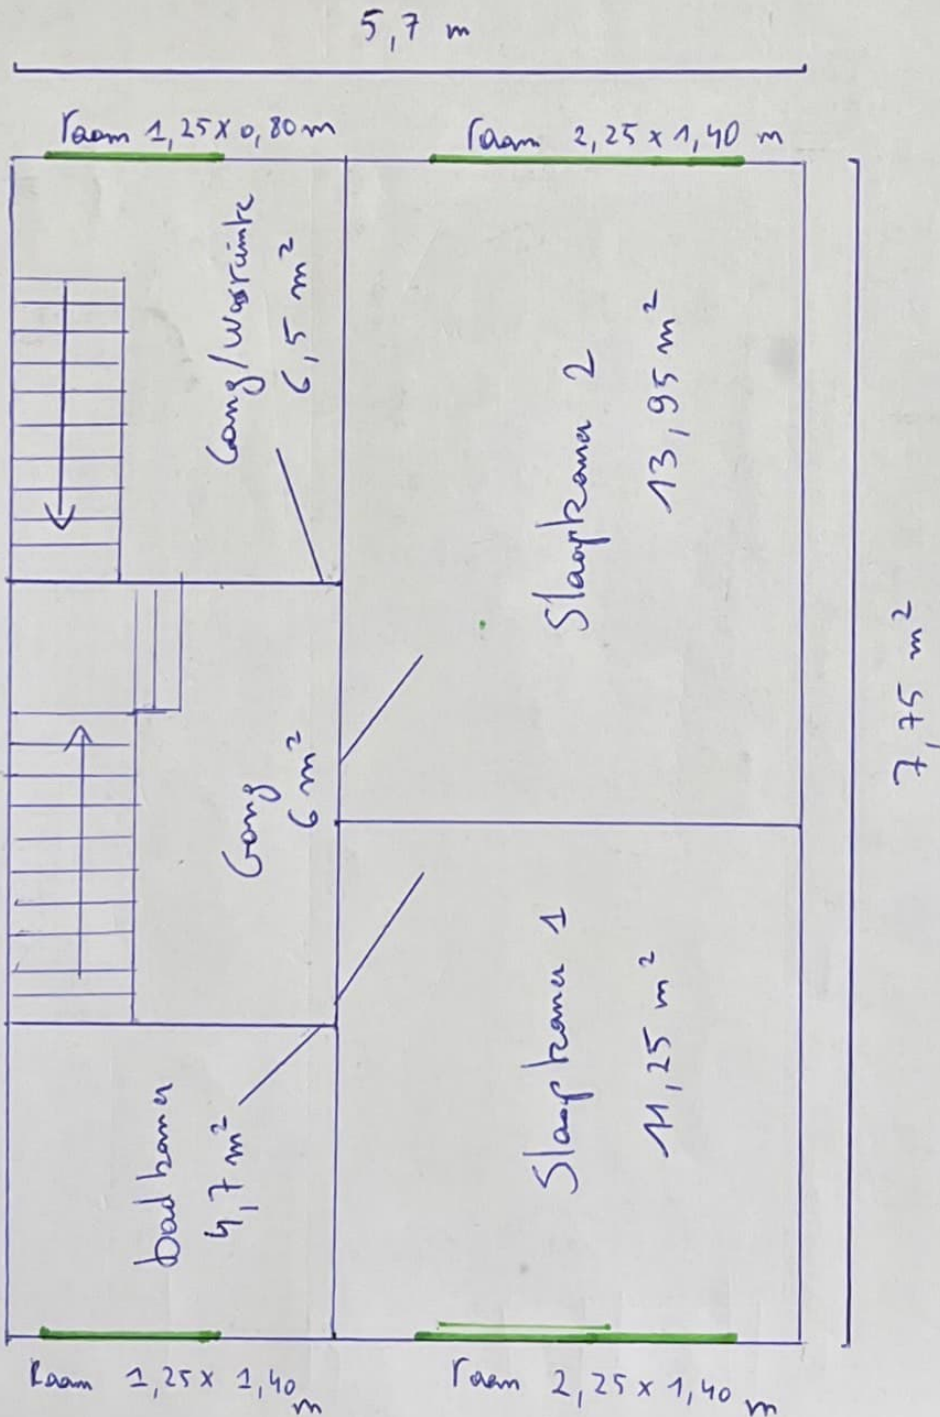 5,7 m
raam 1,25 x 0,80 m
raam 2,25 x 1,40 m
Gang/Wasruimte
6,5 m²
Slaapkamer 2
13,95 m²
7,75 m²
Gang
6 m²
Slaapkamer 1
11,25 m²
badkamer
4,7 m²
Raam 1,25 x 1,40 m
raam 2,25 x 1,40 m